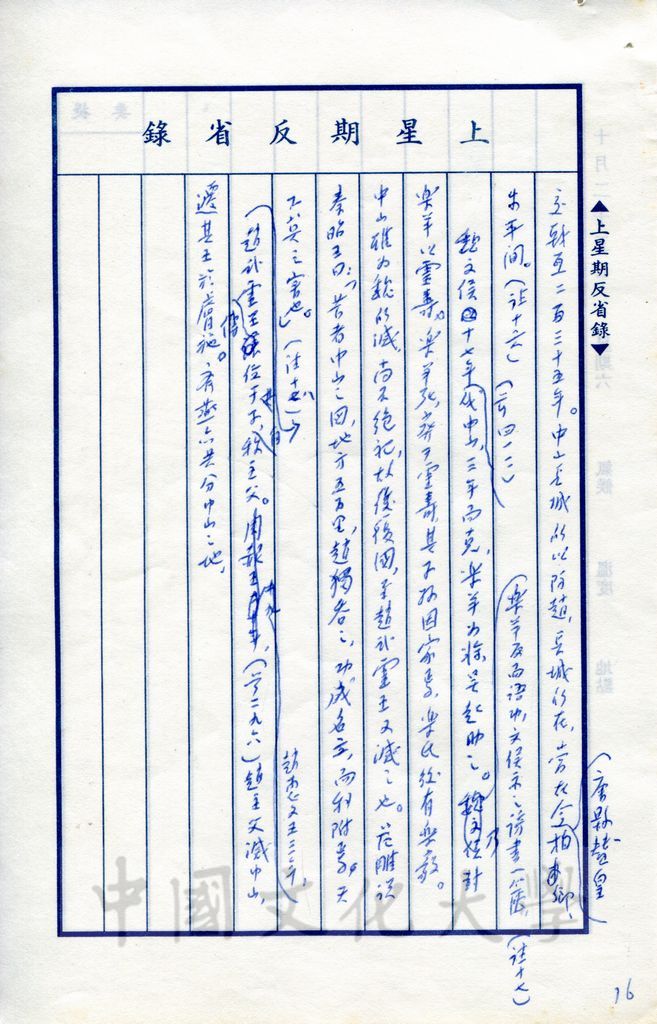 上星期反省錄
▲上星期反省錄▼
至戰至二百三十五年。中山長城所以防趙,長城所在,當在今柏鄉、
(唐縣贊皇)
生年間。(註十六)(前四一二)
(樂羊反而語功,文侯示之謗書一篋,(註十七)
魏文侯十七年伐中山,三年而克,樂羊為將,吳起助之。魏文侯乃封
樂羊以靈壽。樂羊死,葬于靈壽,其子孫因家焉,樂氏後有樂毅。
中山雖為魏所滅,尚不絕祀,故後復國,至趙武靈王又滅之也。范雎說
秦昭王曰:「昔者中山之國,地方五百里,趙獨吞之,功成名立,而利附焉,天
下莫之害也。」(註十八)
(趙武靈王傳位于子,自稱主父。趙惠文王三年,(前二九六)趙主父滅中山,
遷其王於膚施。齊燕亦共分中山之地,
中國文化大學
16